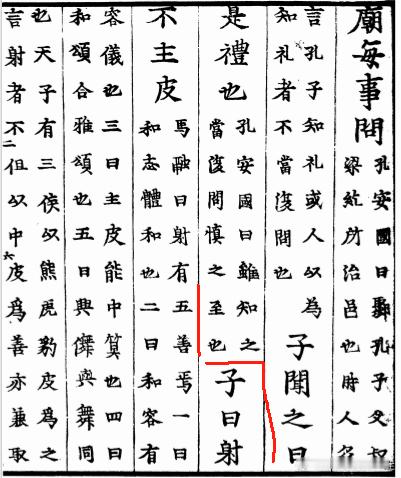 廟每事問
孔安國曰鄹孔子父叔
梁紇所治邑也時人多
言孔子知礼或人以為
知礼者不當復問也
子聞之曰
是禮也
孔安國曰雖知之
當復問慎之至也
子曰射
不主皮
馬融曰射有五善焉一曰
和志體和也二曰和容有
容儀也三曰主皮能中也四曰
和頌合雅頌也五曰興儛與舞同
也天子有三侯以熊虎豹皮為之
言射者不但以中皮為善亦兼取